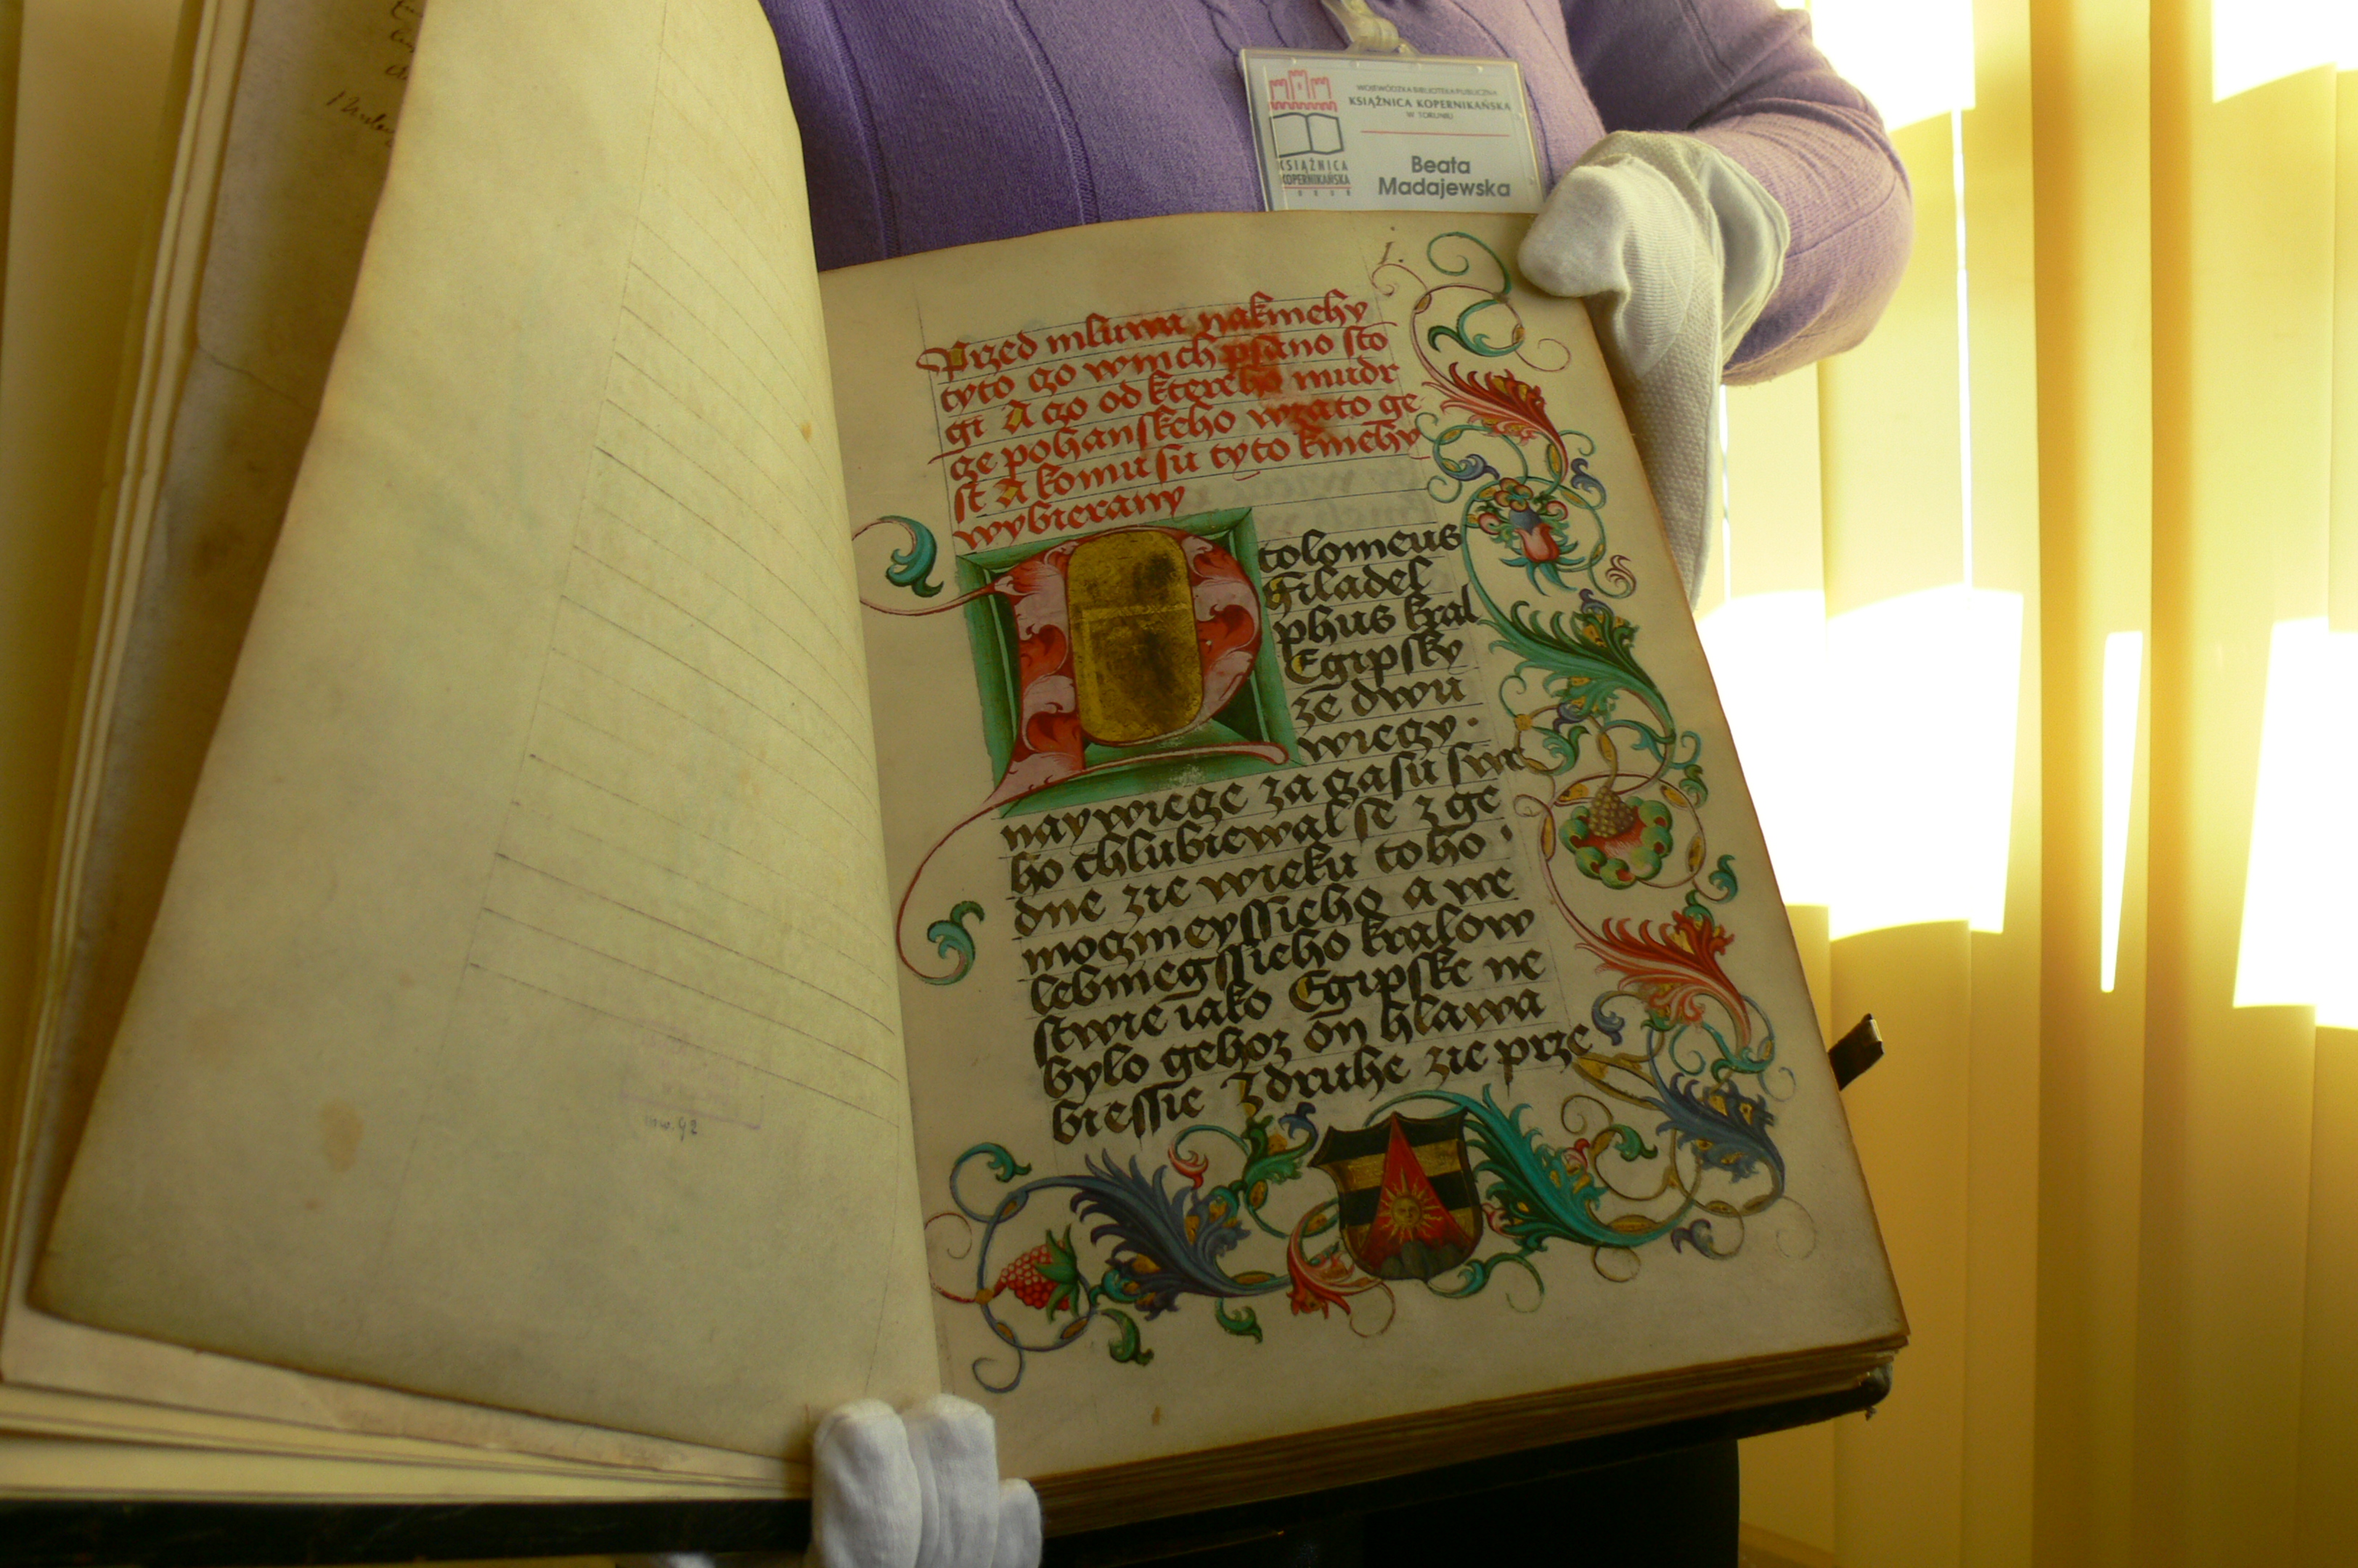 WOJEWÓDZKA BIBLIOTEKA PUBLICZNA
KSIĄŻNICA KOPERNIKAŃSKA
W TORUNIU
KSIĄŻNICA
KOPERNIKAŃSKA
Beata
Madajewska
1.
Przed mluwa nakmehy
tyto czo wnich psano sto
gi A czo od ktereho mudr
ge pohanskeho wzato ge
st A komu su tyto kmehy
wybierany
Ptolomeus
filadel
phus kral
Egipsky
ze dwu
wieczy ·
naywiecze za czasu swe
ho chlubiewal se z ge
dne zie wieku toho ·
mocznieyssieho a we
lebniegssieho kralow
stwie iako Egipske ne
bylo gehoz on hlawa
biessie Zdruhe zie prze
inw. 92